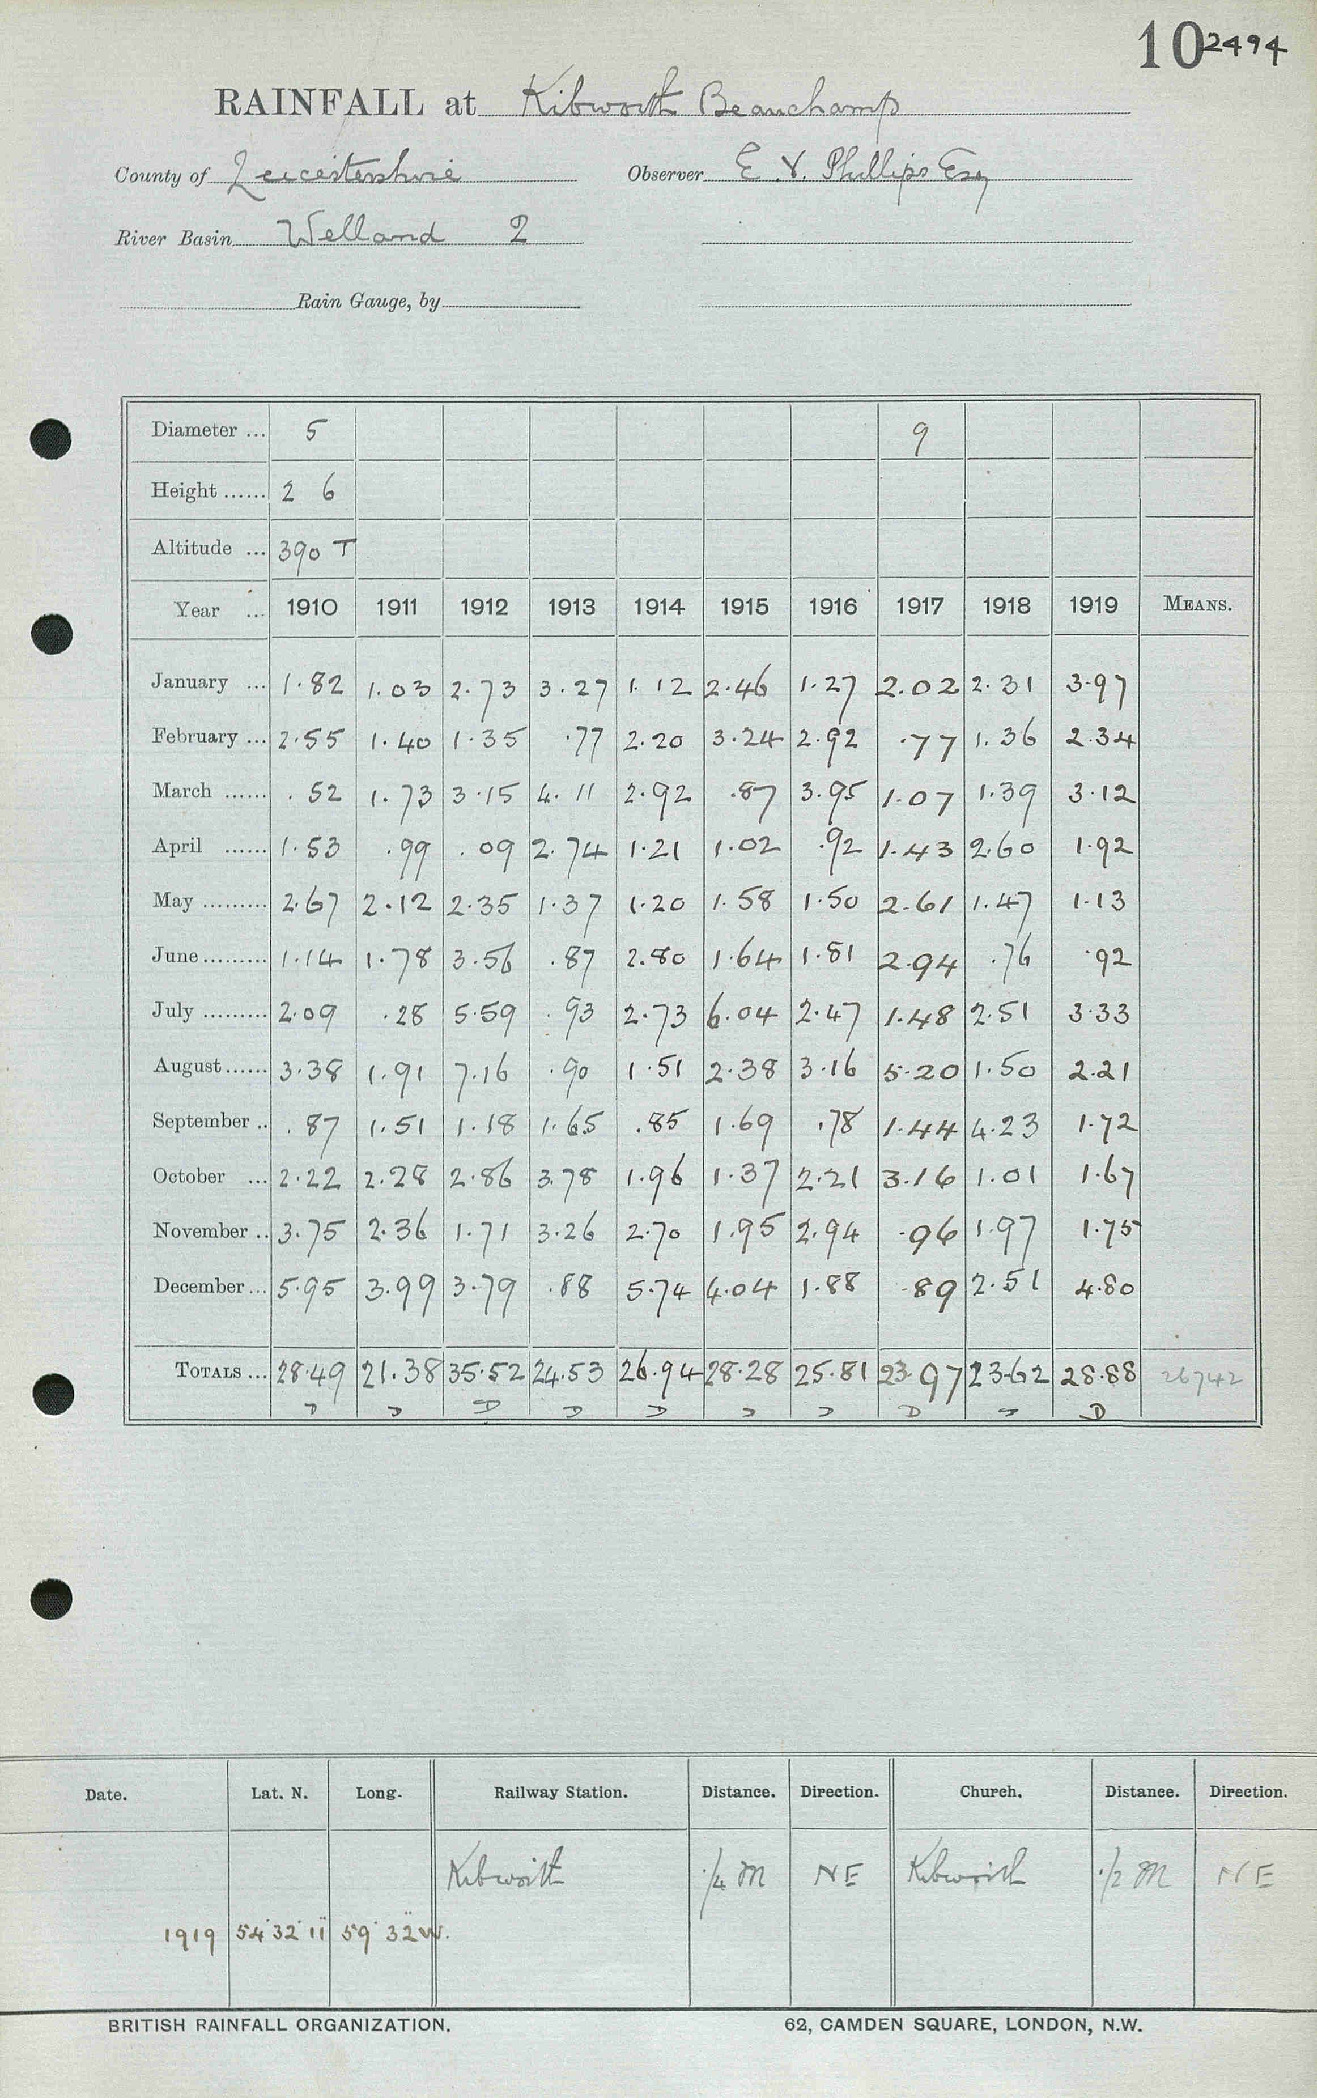 10 2494
RAINFALL at Kibworth Beauchamp
County of Leicestershire Observer E. V. Phillips Esq
River Basin Welland 2
Rain Gauge, by
Diameter ... 5 9
Height ...... 2 6
Altitude ... 390 T
Year ... 1910 1911 1912 1913 1914 1915 1916 1917 1918 1919 MEANS.
January ... 1.82 1.03 2.73 3.27 1.12 2.46 1.27 2.02 2.31 3.97
February ... 2.55 1.40 1.35 .77 2.20 3.24 2.92 .77 1.36 2.34
March ...... .52 1.73 3.15 4.11 2.92 .87 3.95 1.07 1.39 3.12
April ...... 1.53 .99 .09 2.74 1.21 1.02 .92 1.43 2.60 1.92
May ......... 2.67 2.12 2.35 1.37 1.20 1.58 1.50 2.61 1.47 1.13
June ......... 1.14 1.78 3.56 .87 2.80 1.64 1.81 2.94 .76 .92
July ......... 2.09 .28 5.59 .93 2.73 6.04 2.47 1.48 2.51 3.33
August ...... 3.38 1.91 7.16 .90 1.51 2.38 3.16 5.20 1.50 2.21
September .. .87 1.51 1.18 1.65 .85 1.69 .78 1.44 4.23 1.72
October ... 2.22 2.28 2.86 3.78 1.96 1.37 2.21 3.16 1.01 1.67
November .. 3.75 2.36 1.71 3.26 2.70 1.95 2.94 .96 1.97 1.75
December ... 5.95 3.99 3.79 .88 5.74 4.04 1.88 .89 2.51 4.80
TOTALS ... 28.49 21.38 35.52 24.53 26.94 28.28 25.81 23.97 23.62 28.88 26742
D D D D D D D D D D
Date. Lat. N. Long. Railway Station. Distance. Direction. Church. Distance. Direction.
Kibworth 1/4 M NE Kibworth 1/2 M NE
1919 54° 32' 11" 59' 32" W.
BRITISH RAINFALL ORGANIZATION. 62, CAMDEN SQUARE, LONDON, N.W.